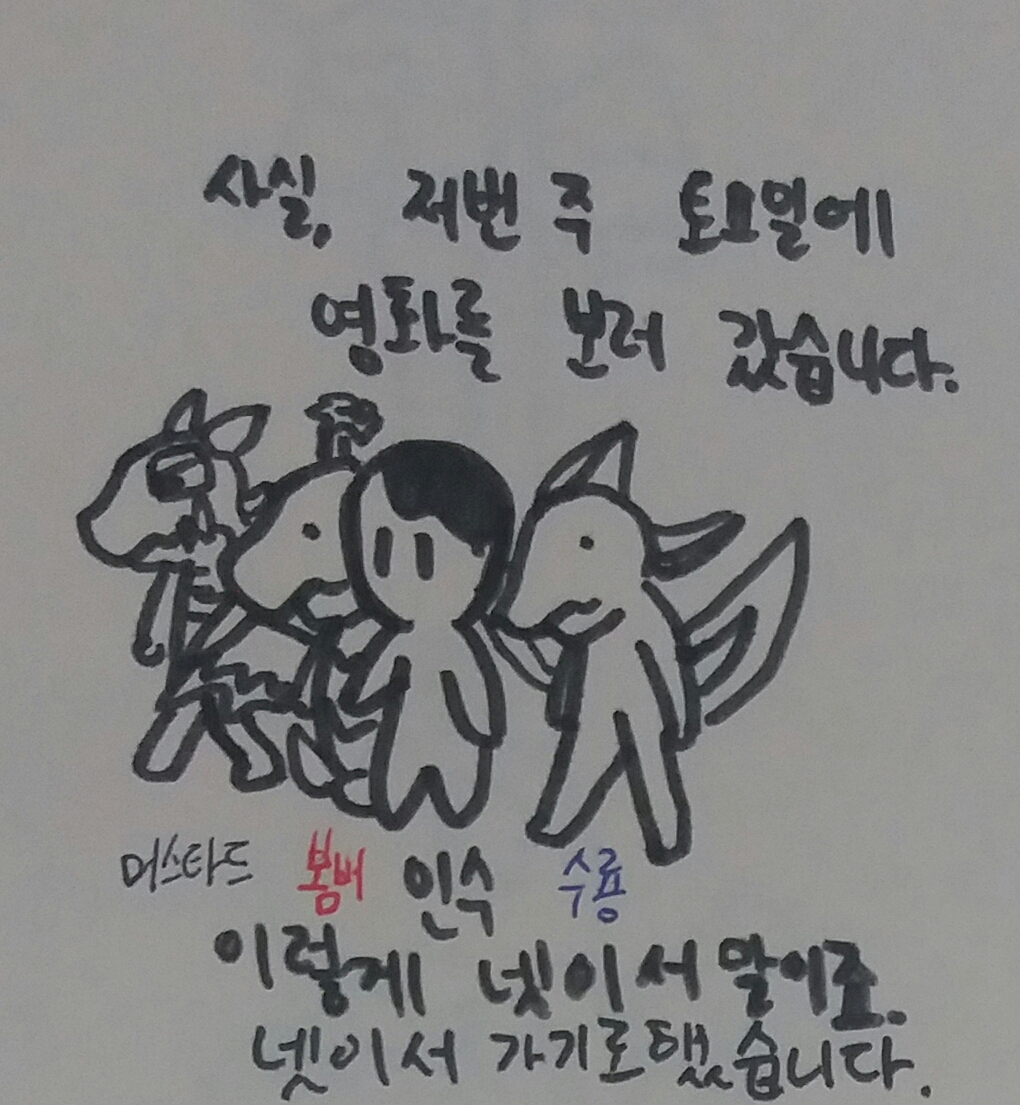 사실, 저번 주 토요일에
영화를 보러 갔습니다.
머스타드 봄버 인수 수룡
이렇게 넷이서 말이죠.
넷이서 가기로 했습니다.